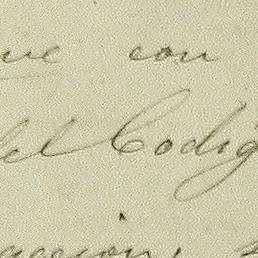 que con
del Codig
accion,